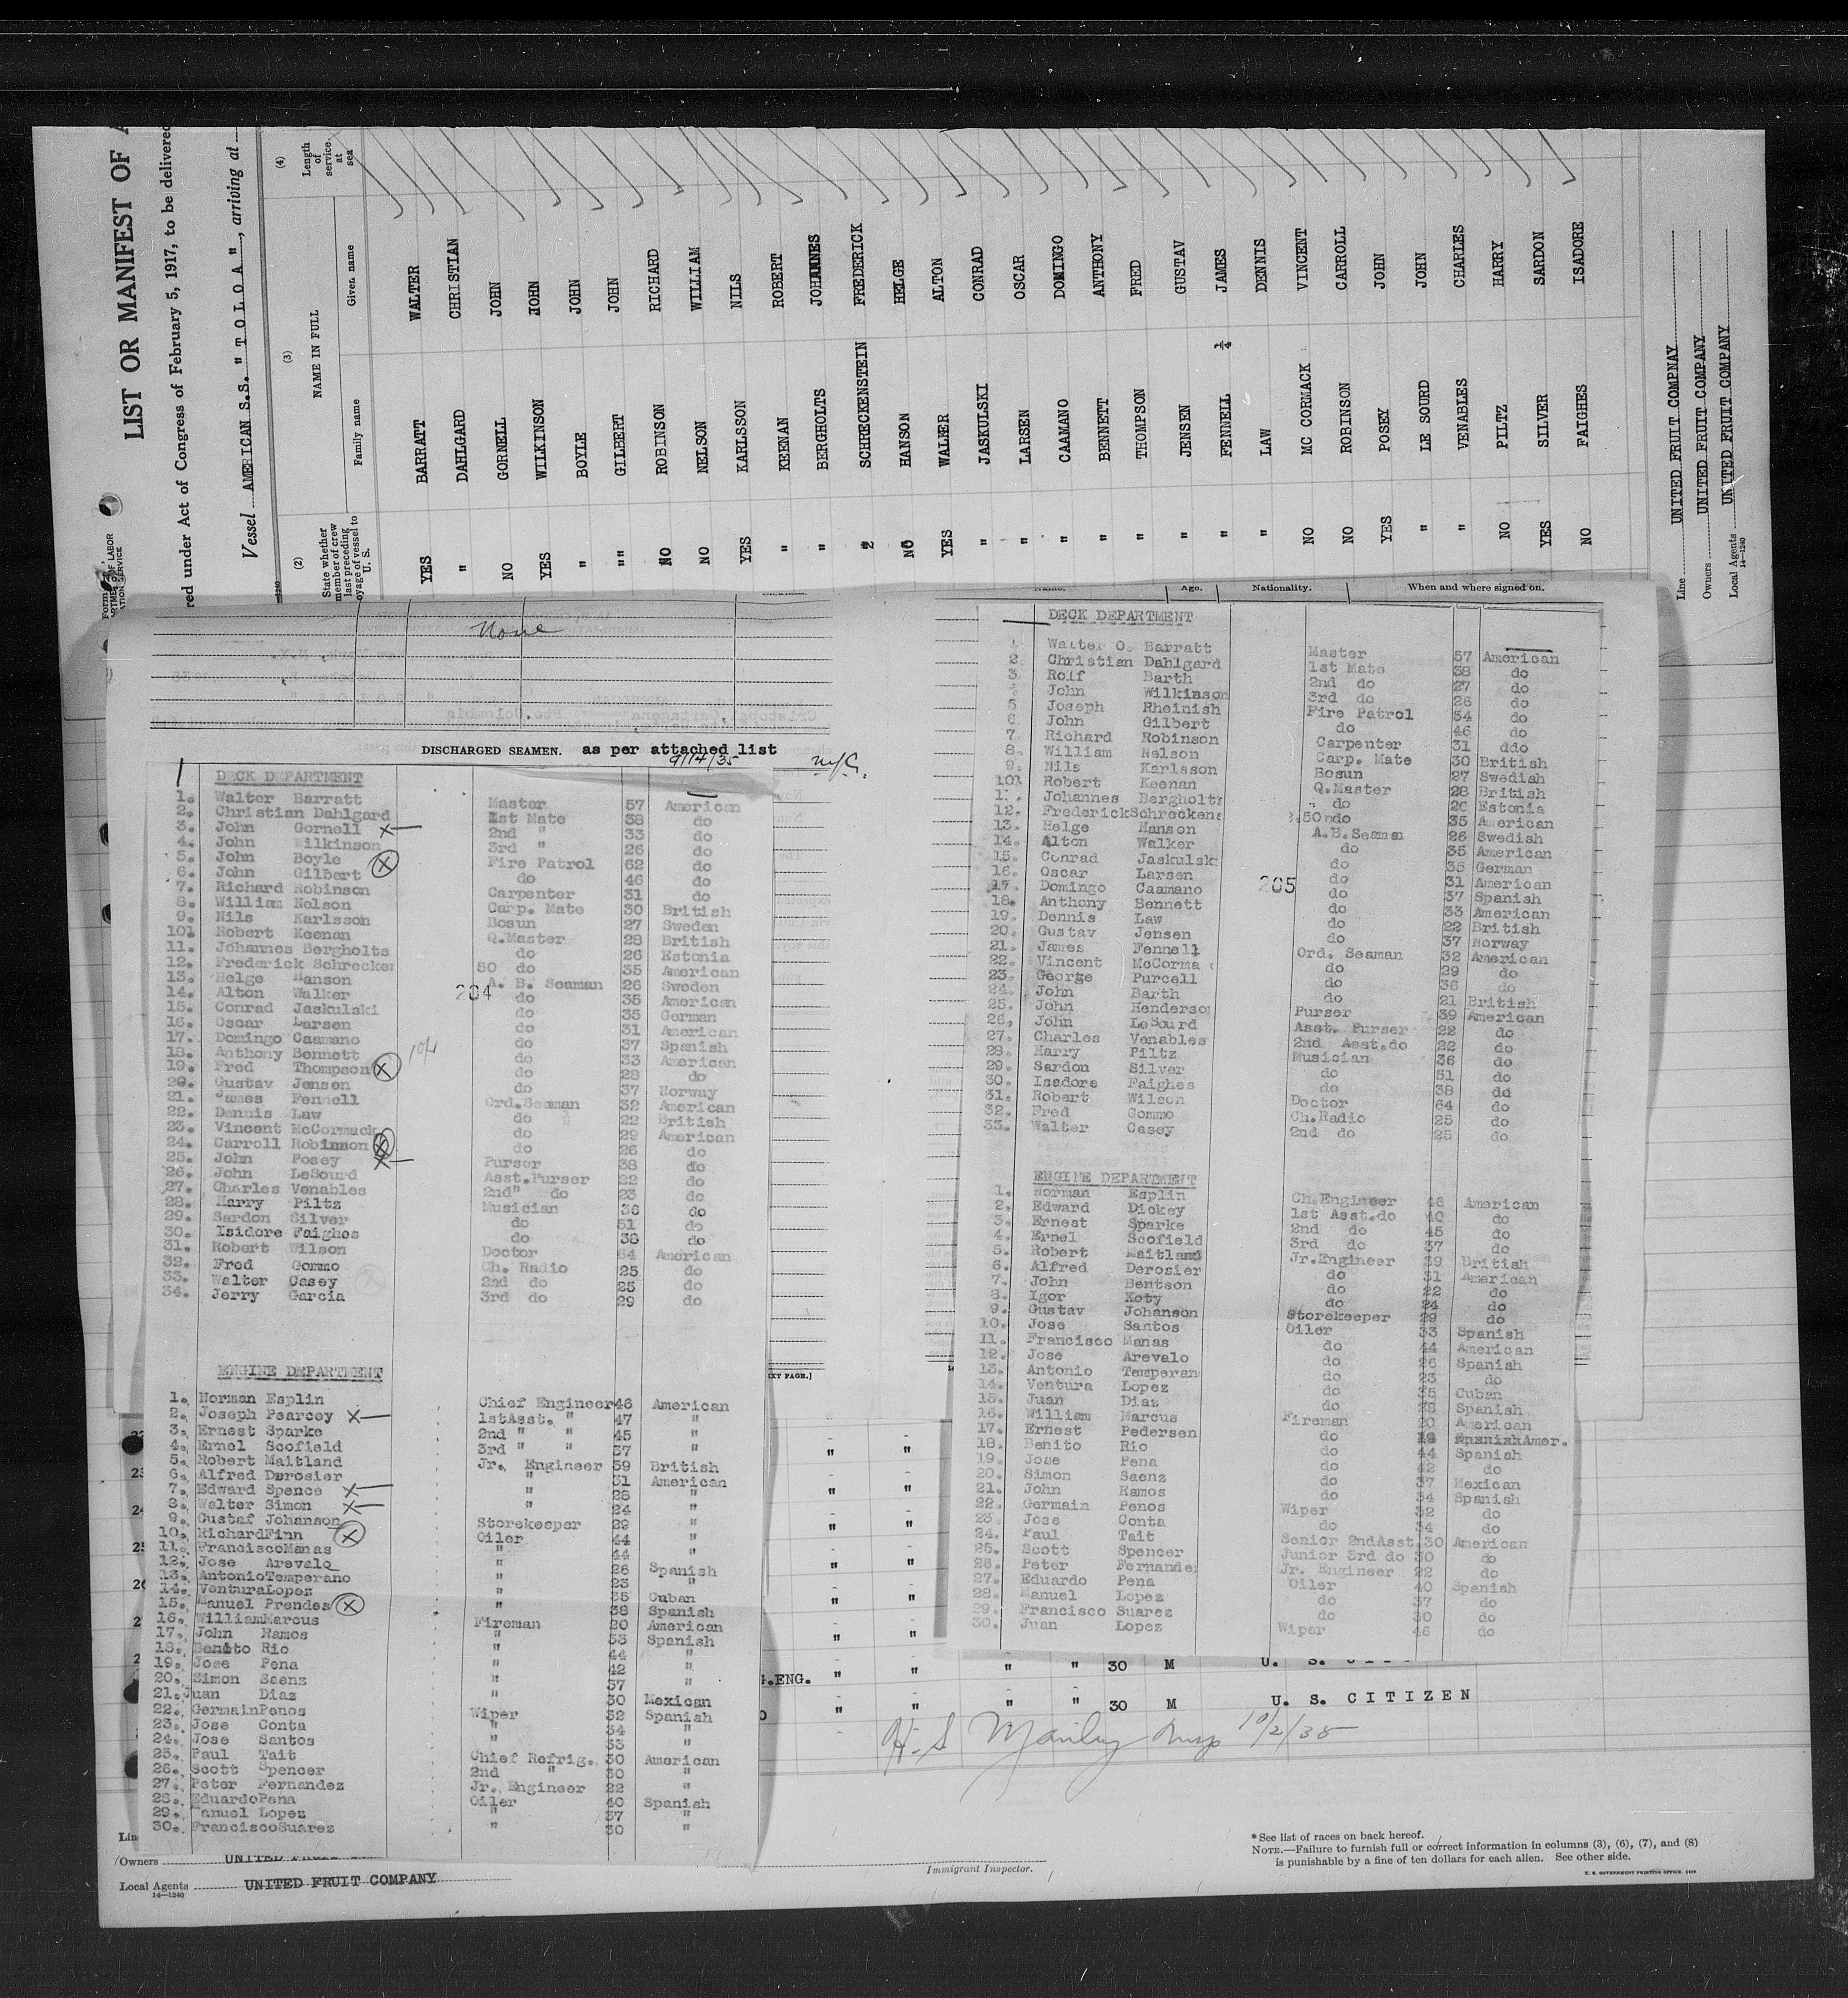 LIST OR MANIFEST OF A
red under Act of Congress of February 5, 1917, to be delivered
Vessel AMERICAN S.S. " T O L O A ", arriving at
(2) (3) (4)
State whether member of crew last preceding oyage of vessel to U. S.
NAME IN FULL
Family name Given name
Length of service at sea
YES BARRATT WALTER
" DAHLGARD CHRISTIAN
NO GORNELL JOHN
YES WILKINSON JOHN
" BOYLE JOHN
"" GILBERT JOHN
NO ROBINSON RICHARD
NO NELSON WILLIAM
YES KARLSSON NILS
" KEENAN ROBERT
" BERGHOLTS JOHANNES
2 SCHRECKENSTEIN FREDERICK
NO HANSON HELGE
YES WALKER ALTON
" JASKULSKI CONRAD
" LARSEN OSCAR
" CAAMANO DOMINGO
" BENNETT ANTHONY
" THOMPSON FRED
" JENSEN GUSTAV
" FENNELL ¼ JAMES
" LAW DENNIS
NO MC CORMACK VINCENT
NO ROBINSON CARROLL
YES POSEY JOHN
" LE SOURD JOHN
" VENABLES CHARLES
NO PILTZ HARRY
YES SILVER SARDON
NO FAIGHES ISADORE
Line UNITED FRUIT COMPNAY
Owners UNITED FRUIT COMPANY
Local Agents UNITED FRUIT COMPANY
14—1240
None
DISCHARGED SEAMEN. as per attached list
9/14/35
DECK DEPARTMENT
1. Walter Barratt Master 57 American
2. Christian Dahlgard 1st Mate 38 do
3. John Gornell X 2nd " 33 do
4. John Wilkinson 3rd " 26 do
5. John Boyle X Fire Patrol 62 do
6. John Gilbert do 46 do
7. Richard Robinson Carpenter 31 do
8. William Nelson Carp. Mate 30 British
9. Nils Karlsson Bosun 27 Sweden
101 Robert Keenan Q.Master 28 British
11. Johannes Bergholts do 26 Estonia
12. Frederick Schrecken 50 do 35 American
13. Helge Hanson A. B. Seaman 26 Sweden
204
14. Alton Walker do 35 American
15. Conrad Jaskulski do 35 German
16. Oscar Larsen do 31 American
17. Domingo Caamano do 37 Spanish
18. Anthony Bennett do 33 American
19. Fred Thompson X do 28 do
20. Gustav Jensen do 37 Norway
21. James Fennell Ord.Seaman 32 American
22. Dennis Law do 22 British
23. Vincent McCormack do 29 American
24. Carroll Robinnon X do 26 do
25. John Posey X Purser 38 do
26. John LeSourd Asst.Purser 22 do
27. Charles Venables 2nd" do 23 do
28. Harry Piltz Musician 36 do
29. Sardon Silver do 51 do
30. Isidore Faighes do 38 do
31. Robert Wilson Doctor 64 American
32. Fred Gommo Ch. Radio 25 do
33. Walter Casey 2nd do 25 do
34. Jerry Garcia 3rd do 29 do
ENGINE DEPARTMENT
1. Norman Esplin Chief Engineer 46 American
2. Joseph Pearcey X 1stAsst. " 47 "
3. Ernest Sparke 2nd " " 45 "
4. Ernel Scofield 3rd " " 37 "
5. Robert Maitland Jr. Engineer 39 British
6. Alfred Derosier " 31 American
7. Edward Spence X " 28 "
8. Walter Simon X " 24 "
9. Gustaf Johanson Storekeeper 29 "
10. RichardFinn X Oiler 44 "
11. FranciscoManas " 44 "
12. Jose Arevalo " 26 Spanish
13. AntonioTemperano " 23 "
14. VenturaLopez " 35 Cuban
15. Manuel Prendes X " 38 Spanish
16. WilliamMarcus Fireman 20 American
17. John Ramos " 33 Spanish
18. Benito Rio " 44 "
19. Jose Pena " 42 "
20. Simon Saenz " 37 "
21. Juan Diaz " 30 Mexican
22. GermainPenos Wiper 32 Spanish
23. Jose Conta " 34 "
24. Jose Santos " 33 "
25. Paul Tait Chief Refrig. 30 American
26. Scott Spencer 2nd " 30 "
27. Peter Fernandez Jr. Engineer 22 "
28. EduardoPena Oiler 40 Spanish
29. Manuel Lopez " 37 "
30. FranciscoSuarez " 30 "
Age. Nationality. When and where signed on.
DECK DEPARTMENT
1. Walter O. Barratt Master 57 American
2. Christian Dahlgard 1st Mate 38 do
3. Rolf Barth 2nd do 27 do
John Wilkinson 3rd do 26 do
5 Joseph Rheinish Fire Patrol 54 do
6. John Gilbert do 46 do
7. Richard Robinson Carpenter 31 ddo
8. William Nelson Carp. Mate 30 British
9. Nils Karlsson Bosun 27 Swedish
101 Robert Keenan Q.Master 28 British
11. Johannes Bergholtz do 26 Estonia
12. FrederickSchreckens do 35 American
13. Helge Hanson A.B.Seaman 26 Swedish
14. Alton Walker do 35 American
15. Conrad Jaskulsk do 35 German
16. Oscar Larsen do 31 American
205
17. Domingo Caamano do 37 Spanish
18. Anthony Bennett do 33 American
19. Dennis Law do 22 British
20. Gustav Jensen do 37 Norway
21. James Fennell Ord. Seaman 32 American
22. Vincent McCorma do 29 do
23. George Purcell do 36 do
24. John Barth do 21 British
25. John Henderso Purser 39 American
26. John LeSourd Asst. Purser 22 do
27. Charles Venables 2nd Asst.do 22 do
28. Harry Piltz Musician 36 do
29. Sardon Silver do 51 do
30. Isadore Faighes do 38 do
31. Robert Wilson Doctor 64 do
32. Fred Gommo Ch.Radio 25 do
33. Walter Casey 2nd do 25 do
ENGINE DEPARTMENT
1. Norman Esplin Ch.Engineer 46 American
2. Edward Dickey 1st Asst.do 40 do
3. Ernest Sparke 2nd do 45 do
4. Ernel Scofield 3rd do 37 do
5. Robert Maitland Jr.Engineer 39 British
6. Alfred Derosier do 31 American
7. John Bentson do 22 do
8. Igor Koty do 24 do
9. Gustav Johanson Storekeeper 29 do
10. Jose Santos Oiler 33 Spanish
11. Francisco Manas do 44 American
12. Jose Arevalo do 26 Spanish
13. Antonio Temperan do 23 do
14. Ventura Lopez do 35 Cuban
15. Juan Diaz do Spanish
16. William Marcus Fireman 20 American
17. Ernest Pedersen do Amer.
18. Benito Rio do 44 Spanish
19. Jose Pena do 42 do
20. Simon Saenz do 37 Mexican
21. John Ramos do 34 Spanish
22. Germain Penos Wiper 32 do
23. Jose Conta do 34 do
24. Paul Tait Senior 2ndAsst 30 American
25. Scott Spencer Junior 3rd do 30 do
26. Peter Fernande Jr. Engineer 22 do
27. Eduardo Pena Oiler 40 Spanish
28. Manuel Lopez do 37 do
29. Francisco Suarez do 30 do
30. Juan Lopez Wiper 46 do
EXT PAGE.]
.ENG. " " " " 30 M
" " " " 30 M U. S. C I T I Z E N
H. S Manley Insp 10/2/35
Owners
Local Agents UNITED FRUIT COMPANY
14—1240
Immigrant Inspector.
* See list of races on back hereof.
NOTE.—Failure to furnish full or correct information in columns (3), (6), (7), and (8)
is punishable by a fine of ten dollars for each alien. See other side.
U. S. GOVERNMENT PRINTING OFFICE